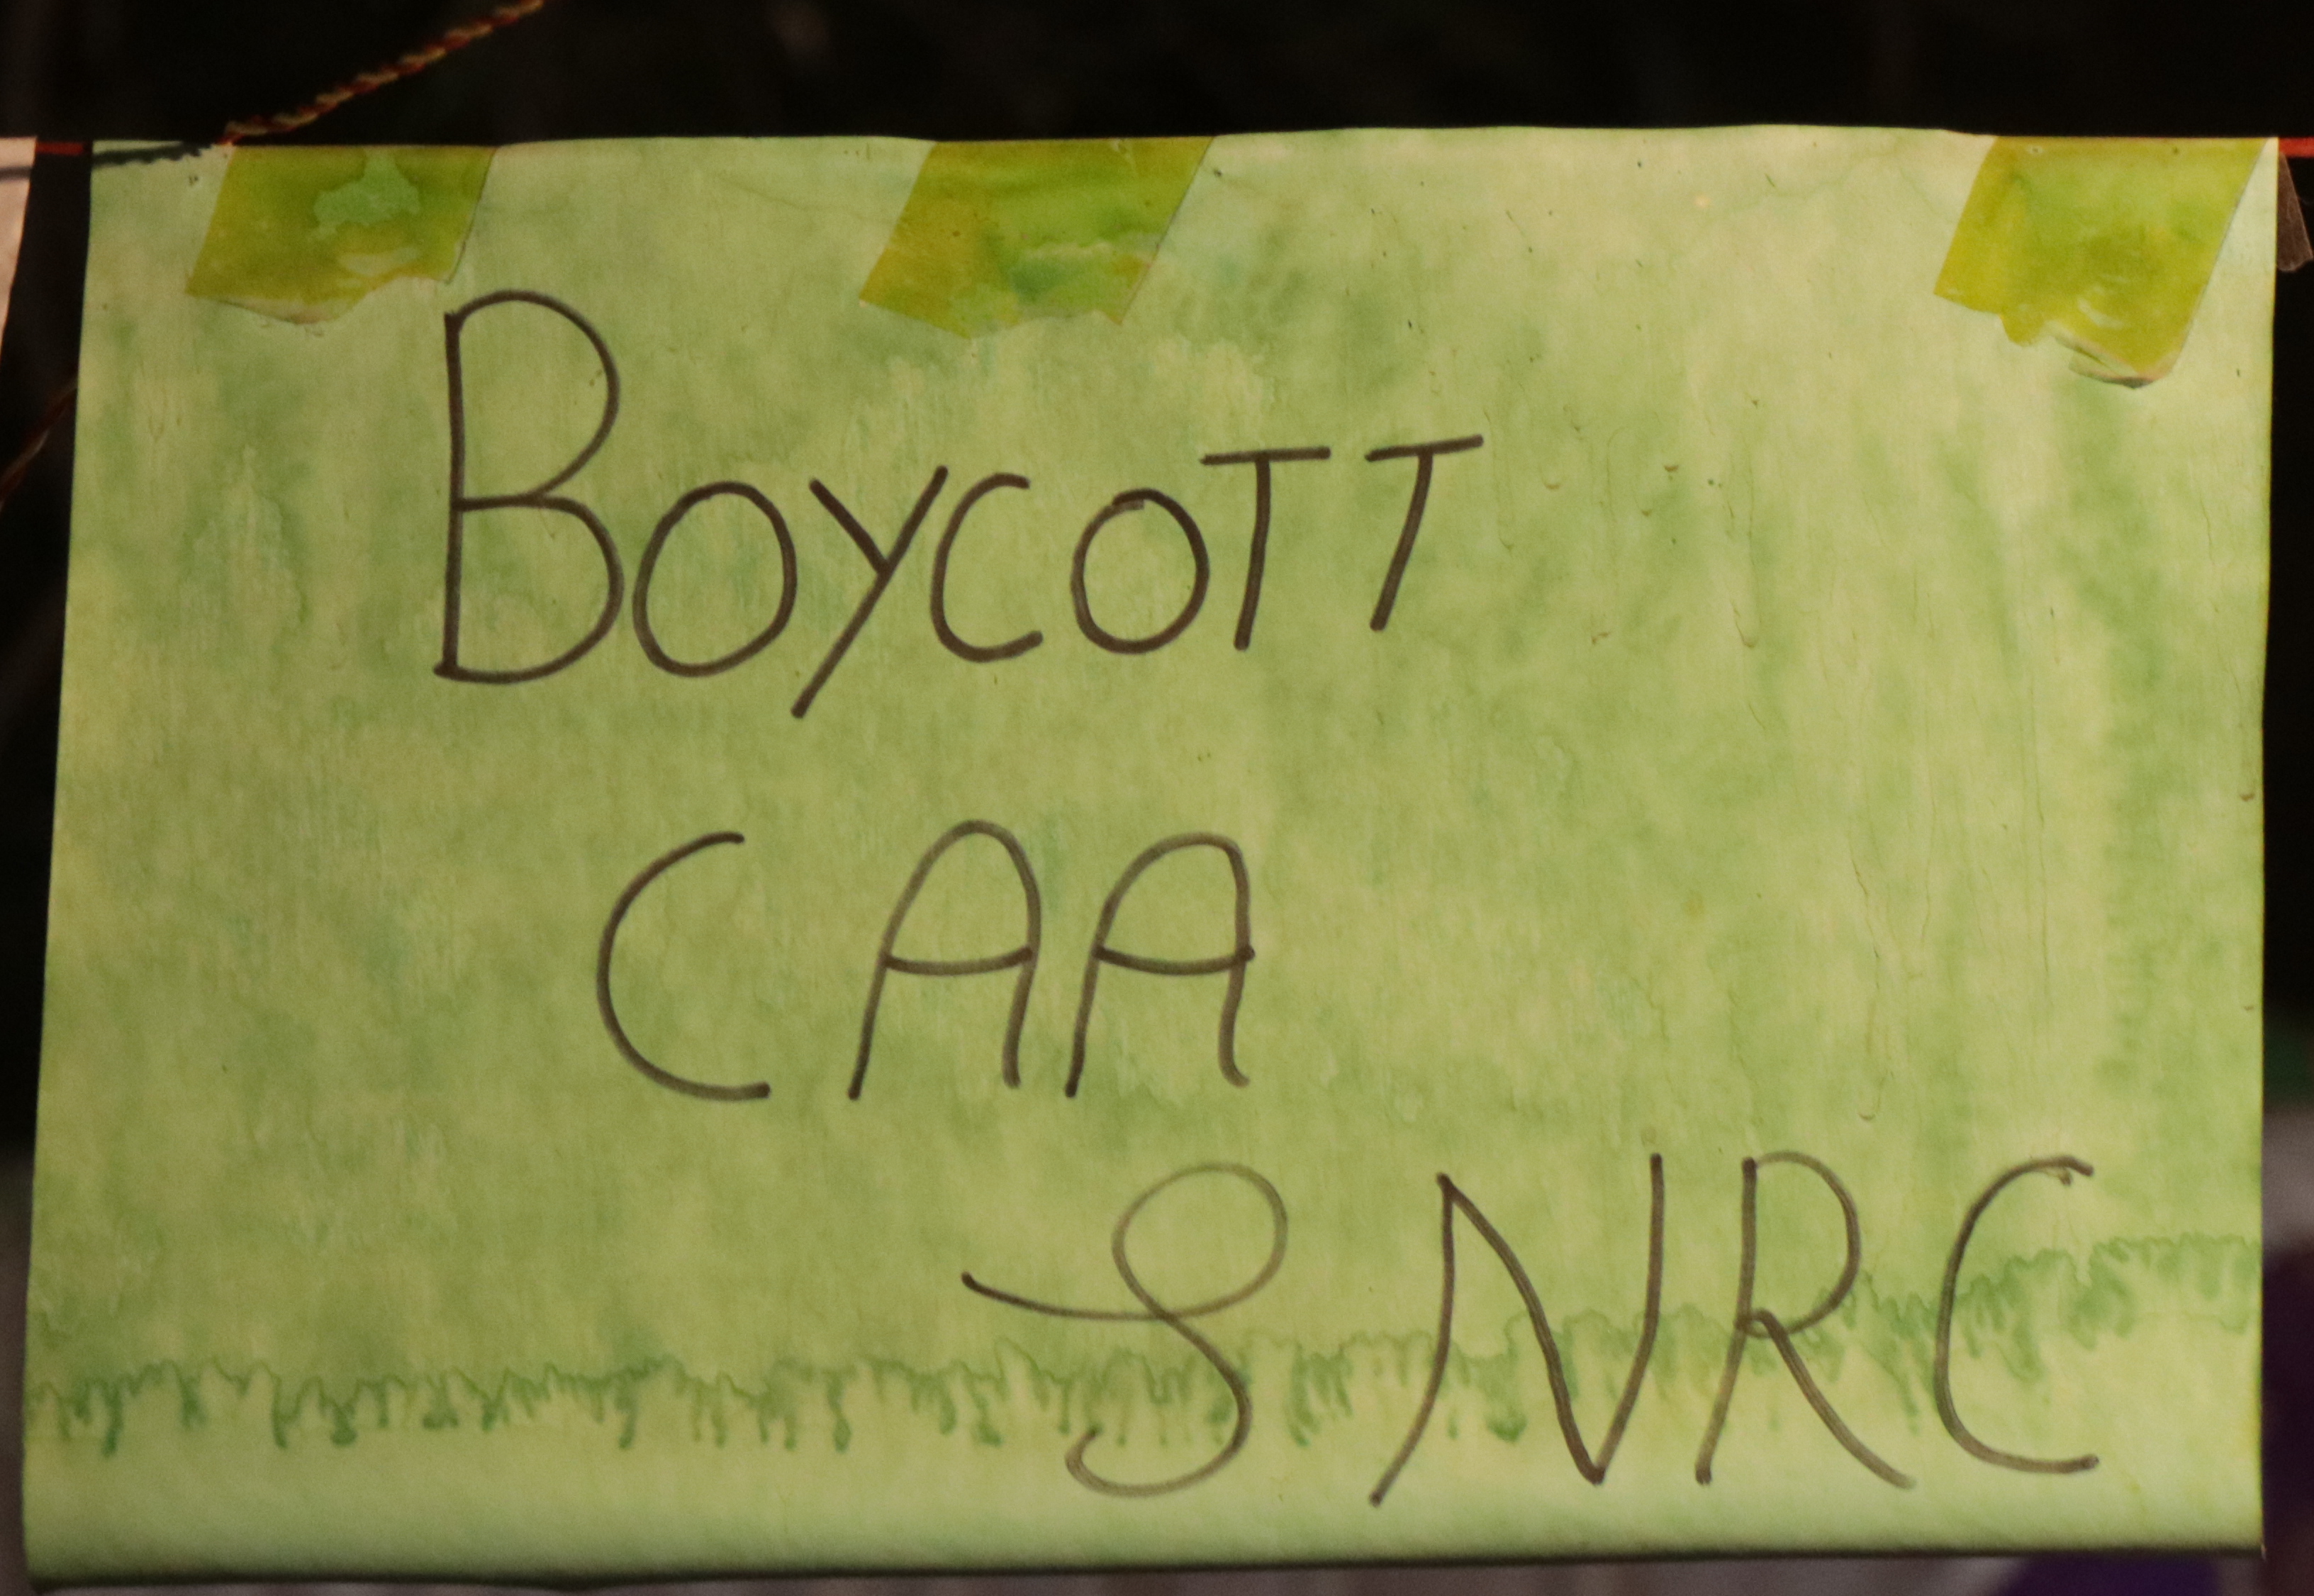 BOYCOTT
CAA
& NRC